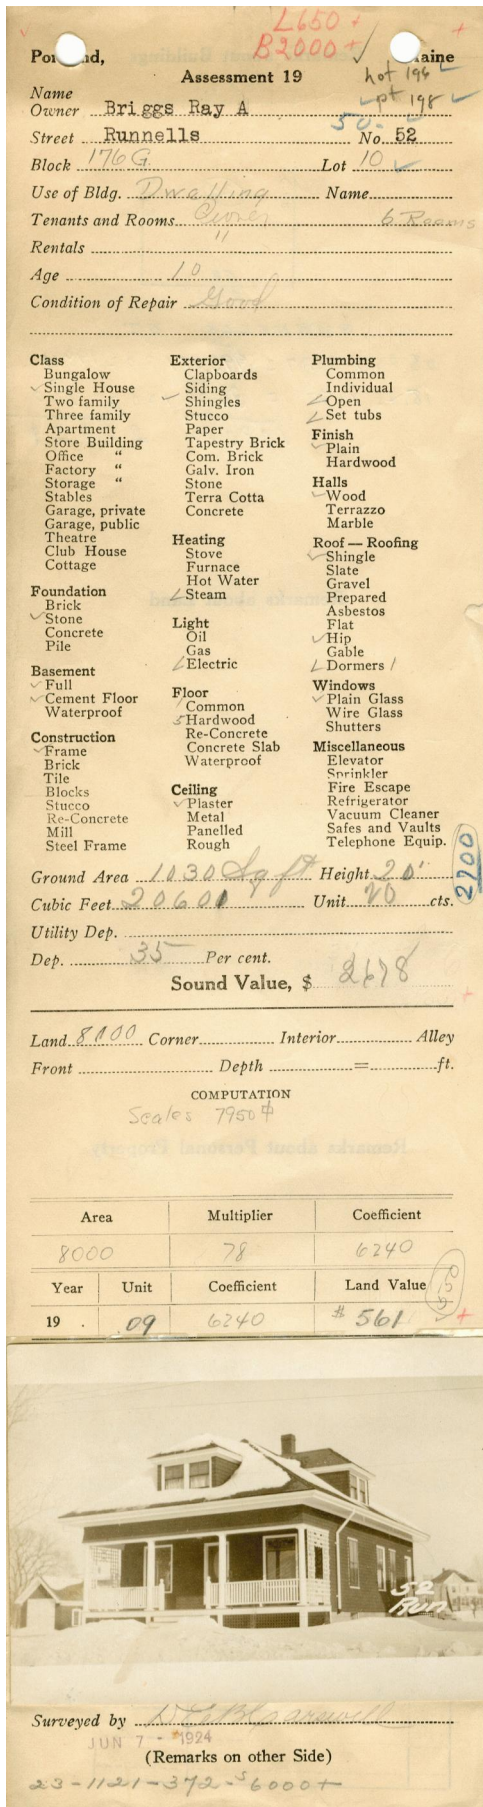 L650 +
B2000 +
Portland, Maine
Assessment 19
hot 196
pt 198
Name
Owner Briggs Ray A
50-
Street Runnells No. 52
Block 176 G Lot 10
Use of Bldg. Dwelling Name
Tenants and Rooms Owner 6 Rooms
Rentals "
Age 10
Condition of Repair Good
Class
Bungalow
Single House
Two family
Three family
Apartment
Store Building
Office "
Factory "
Storage "
Stables
Garage, private
Garage, public
Theatre
Club House
Cottage
Foundation
Brick
Stone
Concrete
Pile
Basement
Full
Cement Floor
Waterproof
Construction
Frame
Brick
Tile
Blocks
Stucco
Re-Concrete
Mill
Steel Frame
Exterior
Clapboards
Siding
Shingles
Stucco
Paper
Tapestry Brick
Com. Brick
Galv. Iron
Stone
Terra Cotta
Concrete
Heating
Stove
Furnace
Hot Water
Steam
Light
Oil
Gas
Electric
Floor
Common
5 Hardwood
Re-Concrete
Concrete Slab
Waterproof
Ceiling
Plaster
Metal
Panelled
Rough
Plumbing
Common
Individual
Open
Set tubs
Finish
Plain
Hardwood
Halls
Wood
Terrazzo
Marble
Roof — Roofing
Shingle
Slate
Gravel
Prepared
Asbestos
Flat
Hip
Gable
Dormers 1
Windows
Plain Glass
Wire Glass
Shutters
Miscellaneous
Elevator
Sprinkler
Fire Escape
Refrigerator
Vacuum Cleaner
Safes and Vaults
Telephone Equip.
Ground Area 1030 Sq ft Height 20'
2200
Cubic Feet 20600 Unit 20 cts.
Utility Dep.
Dep. 35 Per cent.
Sound Value, $ 2678
Land 8000 Corner Interior Alley
Front Depth = ft.
COMPUTATION
Scales 7950
Area Multiplier Coefficient
8000 78 6240
Year Unit Coefficient Land Value
19 . .09 6240 $ 561
52
RUN
Surveyed by
JUN 7 - 1924
(Remarks on other Side)
23-1121-372-$6000+